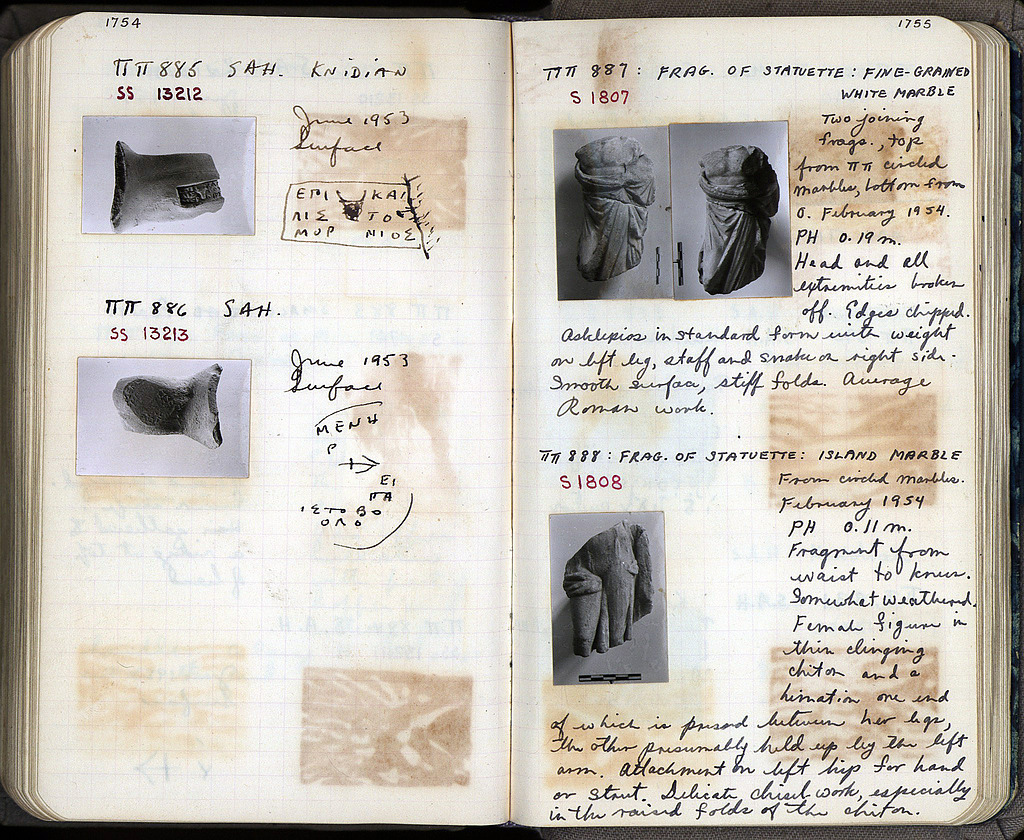 1754
ΠΠ 885 SAH. KNIDIAN
SS 13212
June 1953
Surface
ΕΠΙ ΚΑΙ
ΛΙΣ ΤΟ
ΜΟΡ ΝΙΟΣ
ΠΠ 886 SAH.
SS 13213
June 1953
Surface
ΜΕΝΗ
Ρ
ΕΙ
ΠΑ
ΙΣΤΟΒΟ
ΟΛΟ
1755
ΠΠ 887: FRAG. OF STATUETTE: FINE-GRAINED
S 1807
WHITE MARBLE
Two joining
frags., top
from ΠΠ circled
marbles, bottom from
O. February 1954.
PH 0.19 m.
Head and all
extremities broken
off. Edges chipped.
Asklepios in standard form with weight
on left leg, staff and snake on right side.
Smooth surface, stiff folds. Average
Roman work.
ΠΠ 888: FRAG. OF STATUETTE: ISLAND MARBLE
S 1808
From circled marbles.
February 1954
PH 0.11 m.
Fragment from
waist to knees.
Somewhat weathered.
Female figure in
thin clinging
chiton and a
himation one end
of which is pressed between her legs,
the other presumably held up by the left
arm. Attachment on left hip for hand
or strut. Delicate chisel-work, especially
in the raised folds of the chiton.